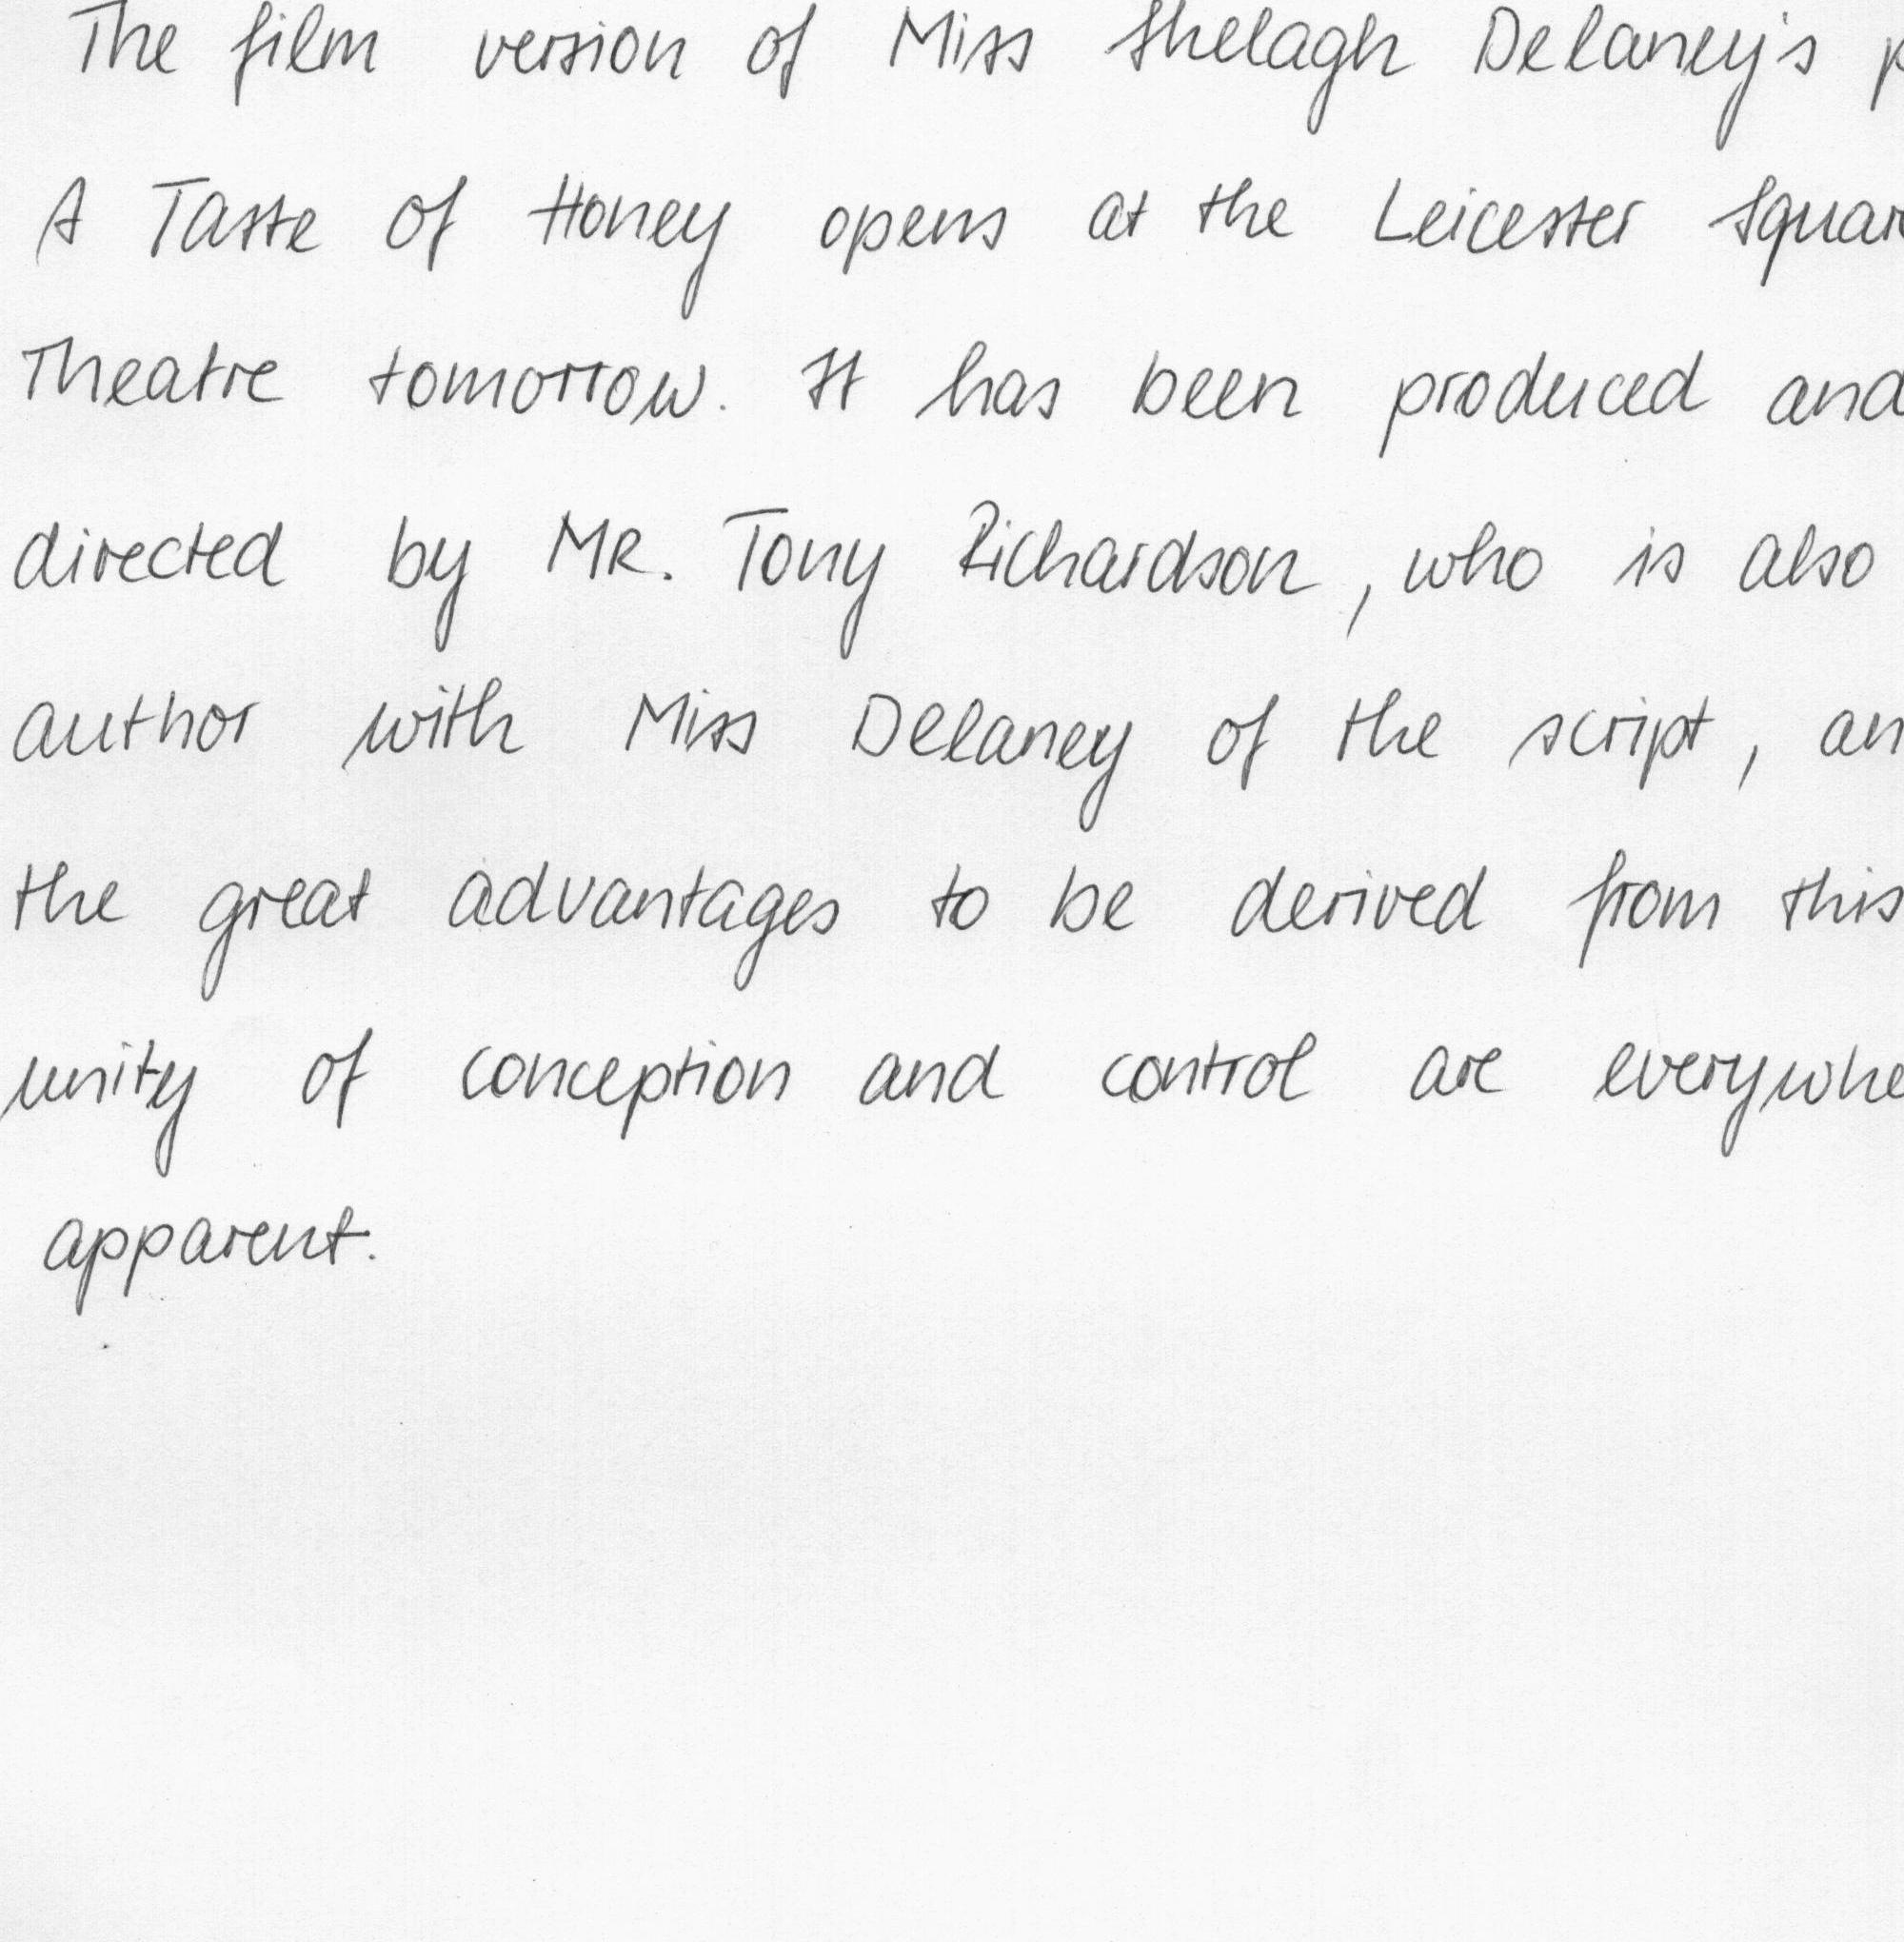 The film version of Miss Shelagh Delaney's
A Taste of Honey opens at the Leicester Squar
Theatre tomorrow. It has been produced and
directed by MR. Tony Richardson, who is also
author with Miss Delaney of the script, an
the great advantages to be derived from this
unity of conception and control are everywhe
apparent.